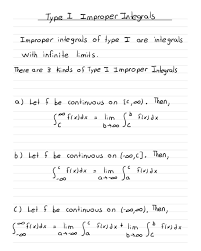 Type I Improper Integrals
Improper integrals of type I are integrals
with infinite limits.
There are 3 kinds of Type I Improper Integrals
a) Let f be continuous on [c,∞). Then,
∫_c^∞ f(x)dx = lim_{b→∞} ∫_c^b f(x)dx
b) Let f be continuous on (-∞,c]. Then,
∫_{-∞}^c f(x)dx = lim_{a→-∞} ∫_a^c f(x)dx
c) Let f be continuous on (-∞,∞). Then,
∫_{-∞}^∞ f(x)dx = lim_{a→-∞} ∫_a^c f(x)dx + lim_{b→∞} ∫_c^b f(x)dx